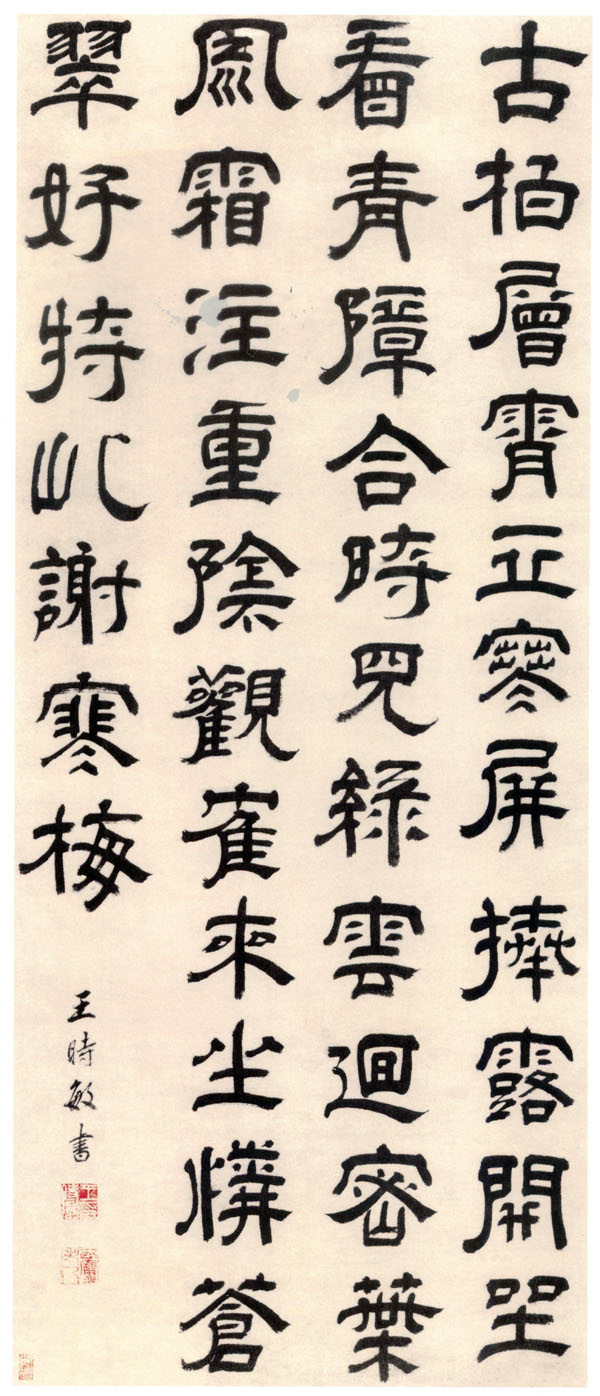 古栢層霄立寒屏捧露開坐
看青障合時見綠雲迴密葉
風霜注重陰觀雀來坐憐蒼
翠好特此謝寒梅
王時敏書